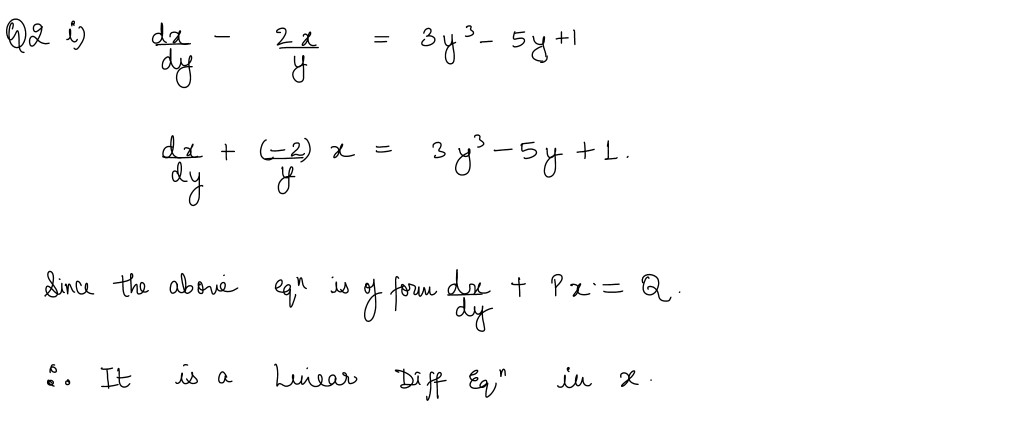 Q2 i) dx/dy - 2x/y = 3y³ - 5y + 1
dx/dy + (-2)/y x = 3y³ - 5y + 1.
Since the above eqⁿ is of form dx/dy + Px = Q.
∴ It is a Linear Diff Eqⁿ in x.